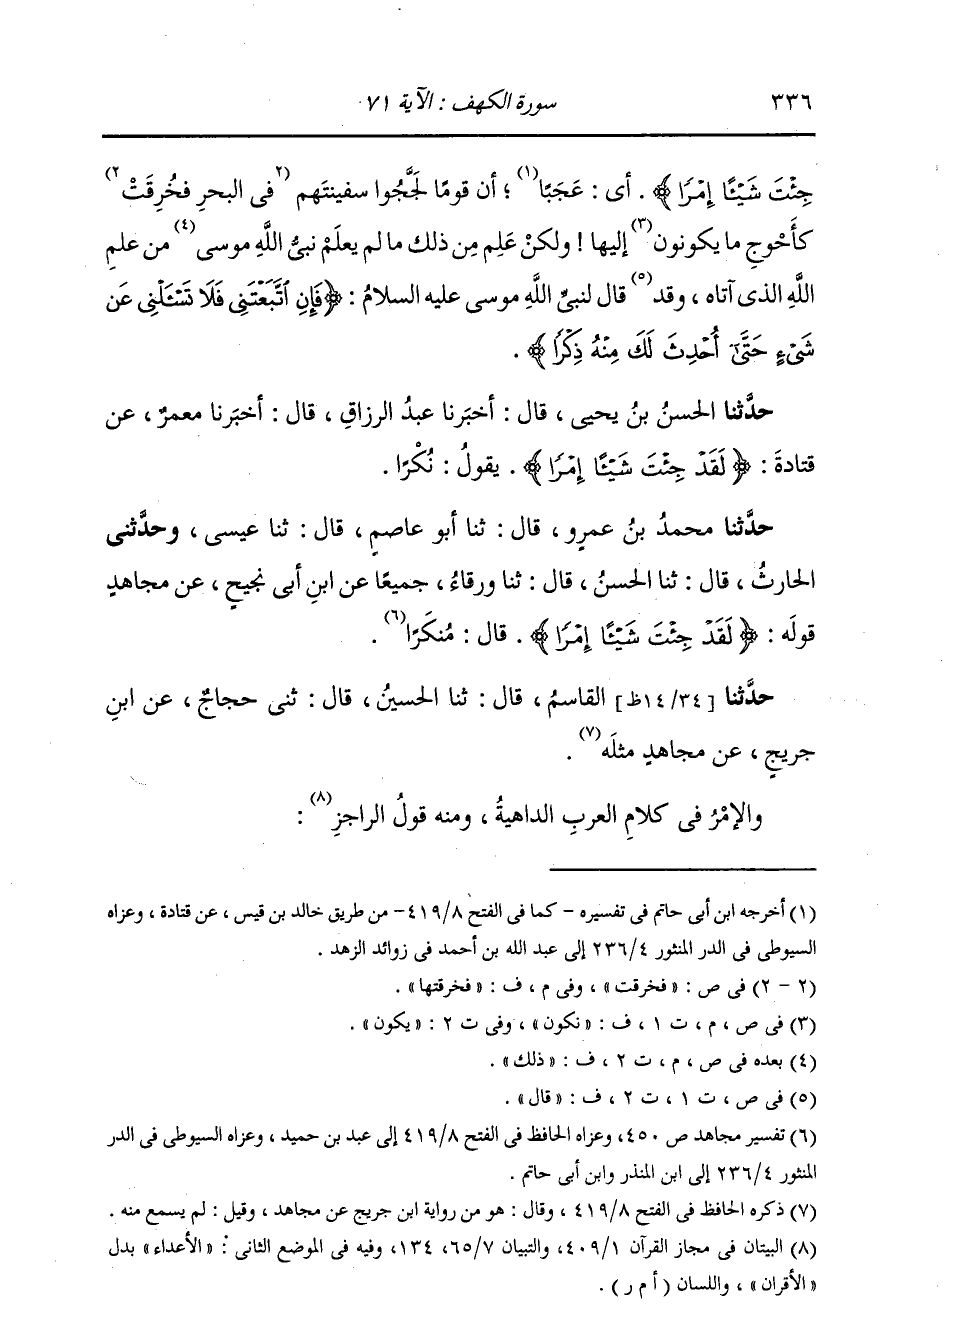 ٣٣٦ سورة الكهف : الآية ٧١
جِئْتَ شَيْئًا إِمْرًا ﴾ . أى : عَجَبًا(١) ؛ أن قومًا لَجَّجُوا سفينتَهم (٢فى البحرِ فخُرِقَتْ٢)
كأَحْوجِ ما يكونون(٣) إليها ! ولكنْ عَلِم مِن ذلك ما لم يعلَمْ نبىُّ اللَّهِ موسى(٤) من علمِ
اللَّهِ الذى آتاه ، وقد(٥) قال لنبىِّ اللَّهِ موسى عليه السلامُ : ﴿ فَإِنِ ٱتَّبَعْتَنِى فَلَا تَسْـَٔلْنِى عَن
شَىْءٍ حَتَّىٰٓ أُحْدِثَ لَكَ مِنْهُ ذِكْرًا ﴾ .
حدَّثنا الحسنُ بنُ يحيى ، قال : أخبَرنا عبدُ الرزاقِ ، قال : أخبَرنا معمرٌ ، عن
قتادةَ : ﴿ لَقَدْ جِئْتَ شَيْئًا إِمْرًا ﴾ . يقولُ : نُكْرًا .
حدَّثنا محمدُ بنُ عمرٍو ، قال : ثنا أبو عاصمٍ ، قال : ثنا عيسى ، وحدَّثنى
الحارثُ ، قال : ثنا الحسنُ ، قال : ثنا ورقاءُ ، جميعًا عن ابنِ أبى نجيحٍ ، عن مجاهدٍ
قولَه : ﴿ لَقَدْ جِئْتَ شَيْئًا إِمْرًا ﴾ . قال : مُنكَرًا(٦) .
حدَّثنا [ ١٤/٣٤ظ] القاسمُ ، قال : ثنا الحسينُ ، قال : ثنى حجاجٌ ، عن ابنِ
جريجٍ ، عن مجاهدٍ مثلَه(٧) .
والإمْرُ فى كلامِ العربِ الداهيةُ ، ومنه قولُ الراجزِ(٨) :
(١) أخرجه ابن أبى حاتم فى تفسيره – كما فى الفتح ٤١٩/٨ – من طريق خالد بن قيس ، عن قتادة ، وعزاه
السيوطى فى الدر المنثور ٢٣٦/٤ إلى عبد الله بن أحمد فى زوائد الزهد .
(٢ – ٢) فى ص : « فخرقت » ، وفى م ، ف : « فخرقتها » .
(٣) فى ص ، م ، ت ١ ، ف : « نكون » ، وفى ت ٢ : « يكون » .
(٤) بعده فى ص ، م ، ت ٢ ، ف : « ذلك » .
(٥) فى ص ، ت ١ ، ت ٢ ، ف : « قال » .
(٦) تفسير مجاهد ص ٤٥٠ ، وعزاه الحافظ فى الفتح ٤١٩/٨ إلى عبد بن حميد ، وعزاه السيوطى فى الدر
المنثور ٢٣٦/٤ إلى ابن المنذر وابن أبى حاتم .
(٧) ذكره الحافظ فى الفتح ٤١٩/٨ ، وقال : هو من رواية ابن جريج عن مجاهد ، وقيل : لم يسمع منه .
(٨) البيتان فى مجاز القرآن ٤٠٩/١ ، والتبيان ٦٥/٧ ، ١٣٤ ، وفيه فى الموضع الثانى : « الأعداء » بدل
« الأقران » ، واللسان ( أ م ر ) .